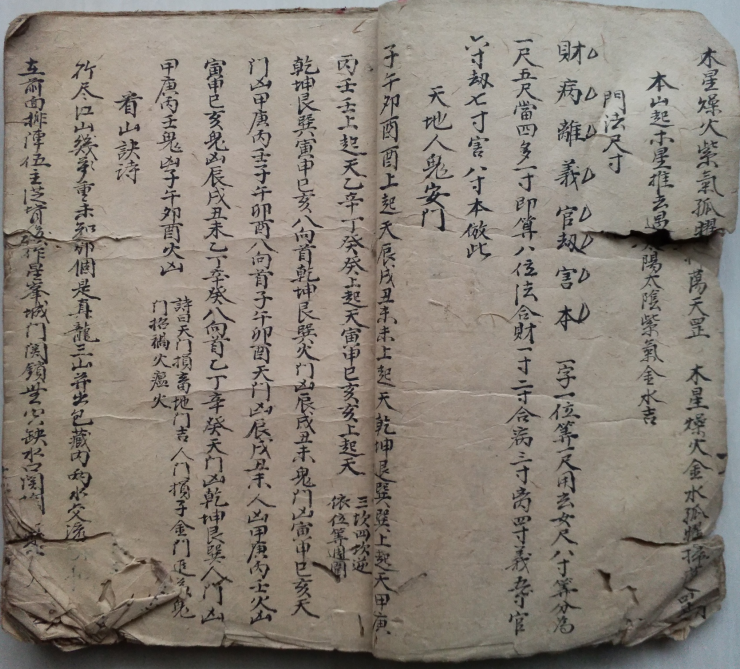 木星燥火紫氣孤 萬天罡 木星燥火金水孤
本山起木星推去遇 陽太陰紫氣金水吉
門法尺寸
財病離義官劫害本
一字一位算一尺用玄女尺八寸算分為
一尺五尺當四多一寸即算八位法合財一寸二寸合病三寸离四寸義五寸官
六寸劫七寸害八寸本倣此
天地人鬼安門
子午卯酉酉上起天辰戌丑未未上起天乾坤艮巽巽上起天甲庚
丙壬壬上起天乙辛丁癸癸上起天寅申巳亥亥上起天
三次四次逆
依位算週圍
乾坤艮巽寅申巳亥八向首乾坤艮巽火門凶辰戌丑未鬼門凶寅申巳亥天
門凶甲庚丙壬子午卯酉八向首子午卯酉天門凶辰戌丑未人凶甲庚丙壬火凶
寅申巳亥鬼凶辰戌丑未乙丁辛癸八向首乙丁辛癸天門凶乾坤艮巽人門凶
甲庚丙壬鬼凶子午卯酉火凶
詩曰天門損畜地門吉人門損子金門 鬼
門招禍火瘟火
看山訣詩
行尽江山幾萬重未知那個是真龍三山并出包藏內兩水交流
立前面排 伍主 作星峯城門関鎖 缺水口関